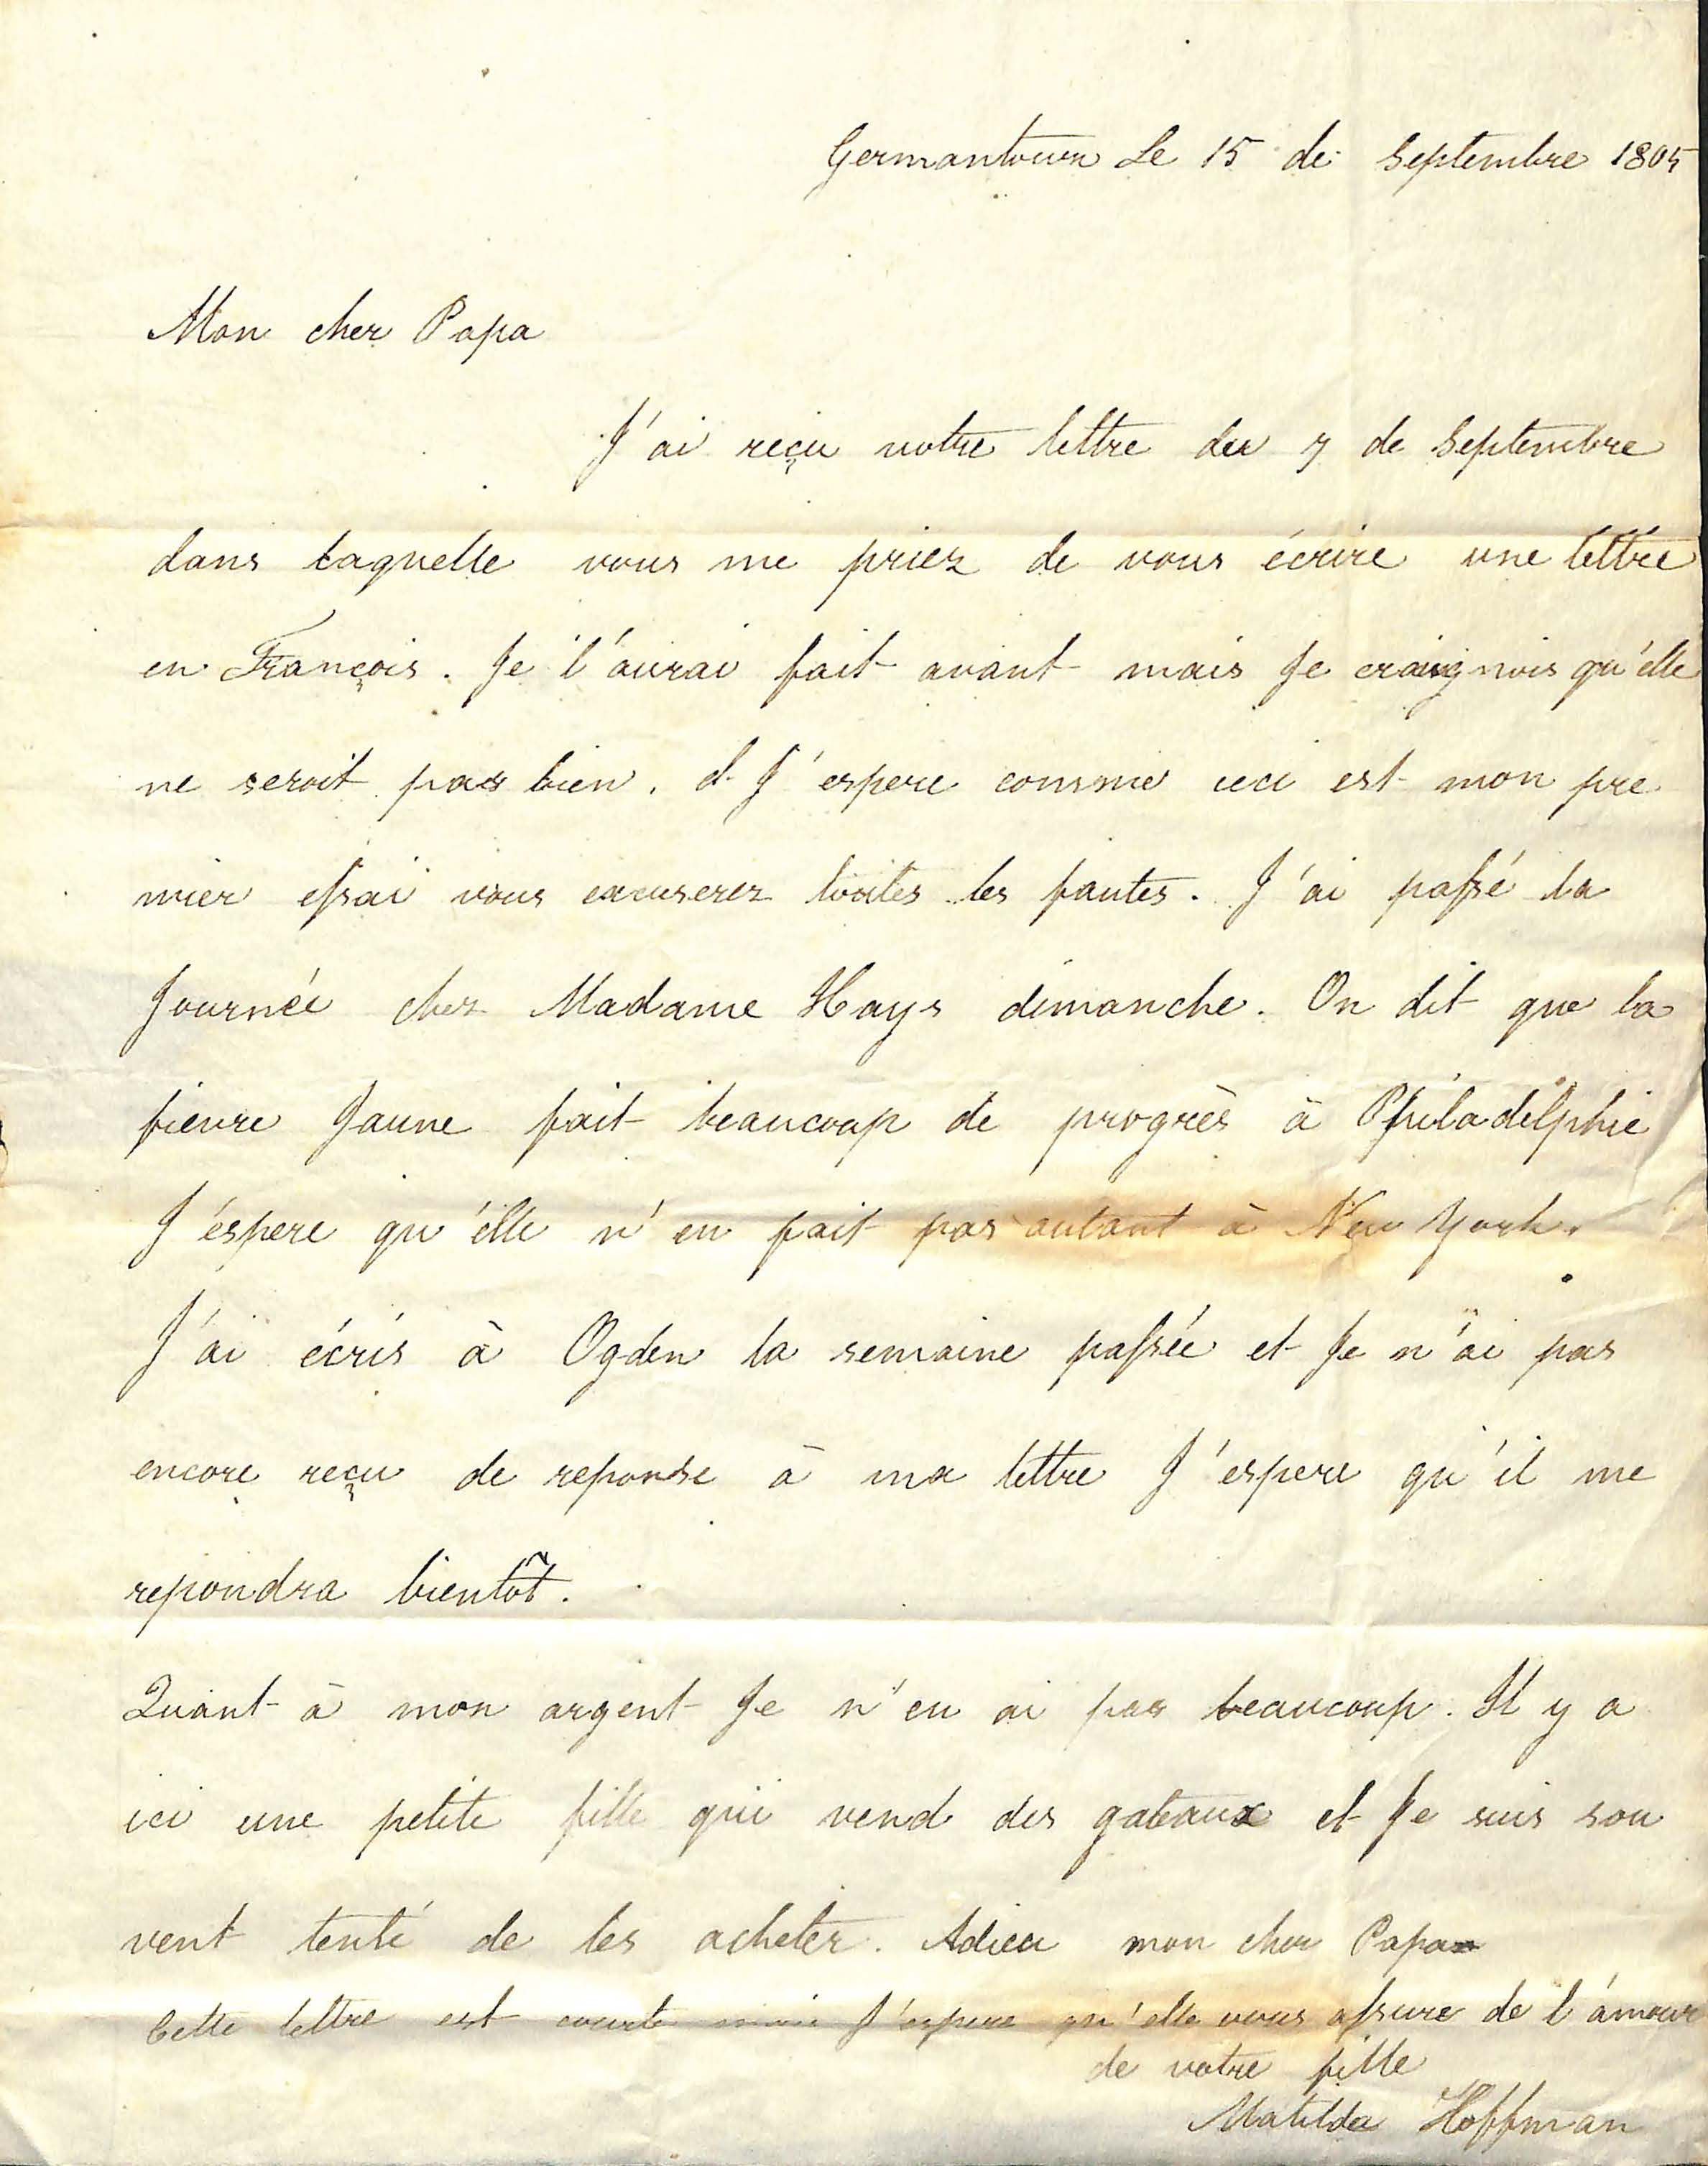 Germantown Le 15 de Septembre 1805
Mon cher Papa
J'ai reçu votre lettre du 7 de Septembre
dans laquelle vous me priez de vous écrire une lettre
en François. Je l'aurai fait avant mais Je craignois qu'elle
ne seroit pas bien. et J'espere comme ceci est mon pre
mier essai vous excuserez toutes les fautes. J'ai passé la
Journée chez Madame Hays dimanche. On dit que la
fievre Jaune fait beaucoup de progrès à Philadelphie
J'éspere qu'elle n'en fait pas autant à New York.
J'ai écris à Ogden la semaine passée et Je n'ai pas
encore reçu de reponse à ma lettre J'espere qu'il me
repondra bientôt.
Quant à mon argent Je n'en ai pas beaucoup. Il y a
ici une petite fille qui vend des gateaux et Je suis sou
vent tenté de les acheter. Adieu mon cher Papa
Cette lettre est courte mais J'espere qu'elle vous assure de l'amour
de votre fille
Matilda Hoffman